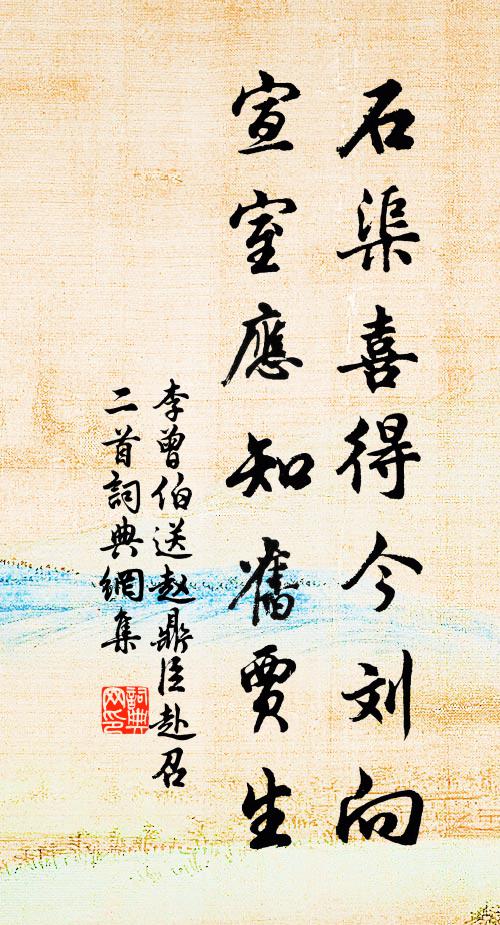 石渠喜得今刘向
宣室應知舊賈生
李曾伯送赵鼎臣赴召
二首詞典網集
詞典
网印